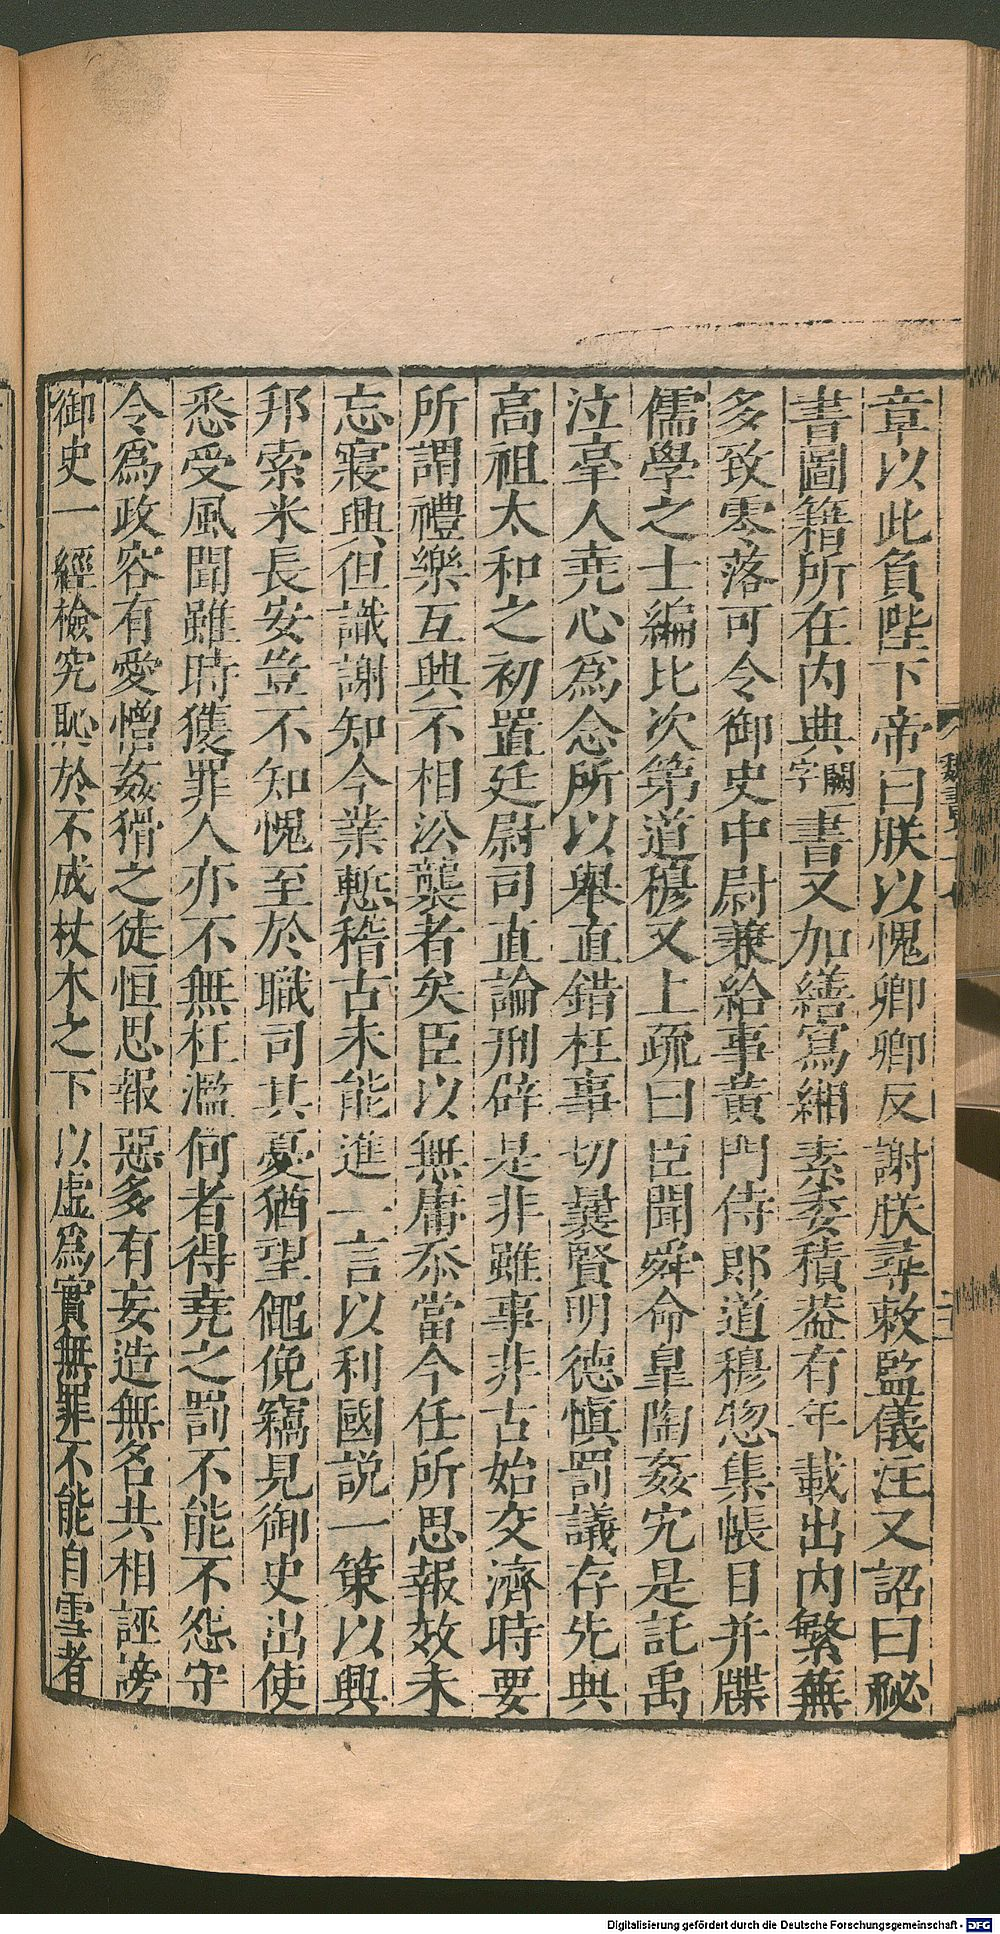 章以此負陛下帝曰朕以愧卿卿反謝朕尋敕監儀注又詔曰秘
書圖籍所在內典闕字書又加繕寫緗素委積葢有年載出內繁蕪
多致零落可令御史中尉兼給事黃門侍郎道穆惣集帳目并牒
儒學之士編比次第道穆又上疏曰臣聞舜命皐陶姦宄是託禹
泣辜人堯心爲念所以舉直錯枉事切曩賢明德慎罰議存先典
高祖太和之初置廷尉司直論刑辟是非雖事非古始交濟時要
所謂禮樂互興不相沿襲者矣臣以無庸忝當今任所思報效未
忘寢興但識謝知今業慙稽古未能進一言以利國説一策以興
邦索米長安豈不知愧至於職司其憂猶望僶俛竊見御史出使
悉受風聞雖時獲罪人亦不無枉濫何者得堯之罰不能不怨守
令爲政容有愛憎姦猾之徒恒思報惡多有妄造無名共相誣謗
御史一經檢究恥於不成杖木之下以虛爲實無罪不能自雪者
Digitalisierung gefördert durch die Deutsche Forschungsgemeinschaft - DFG